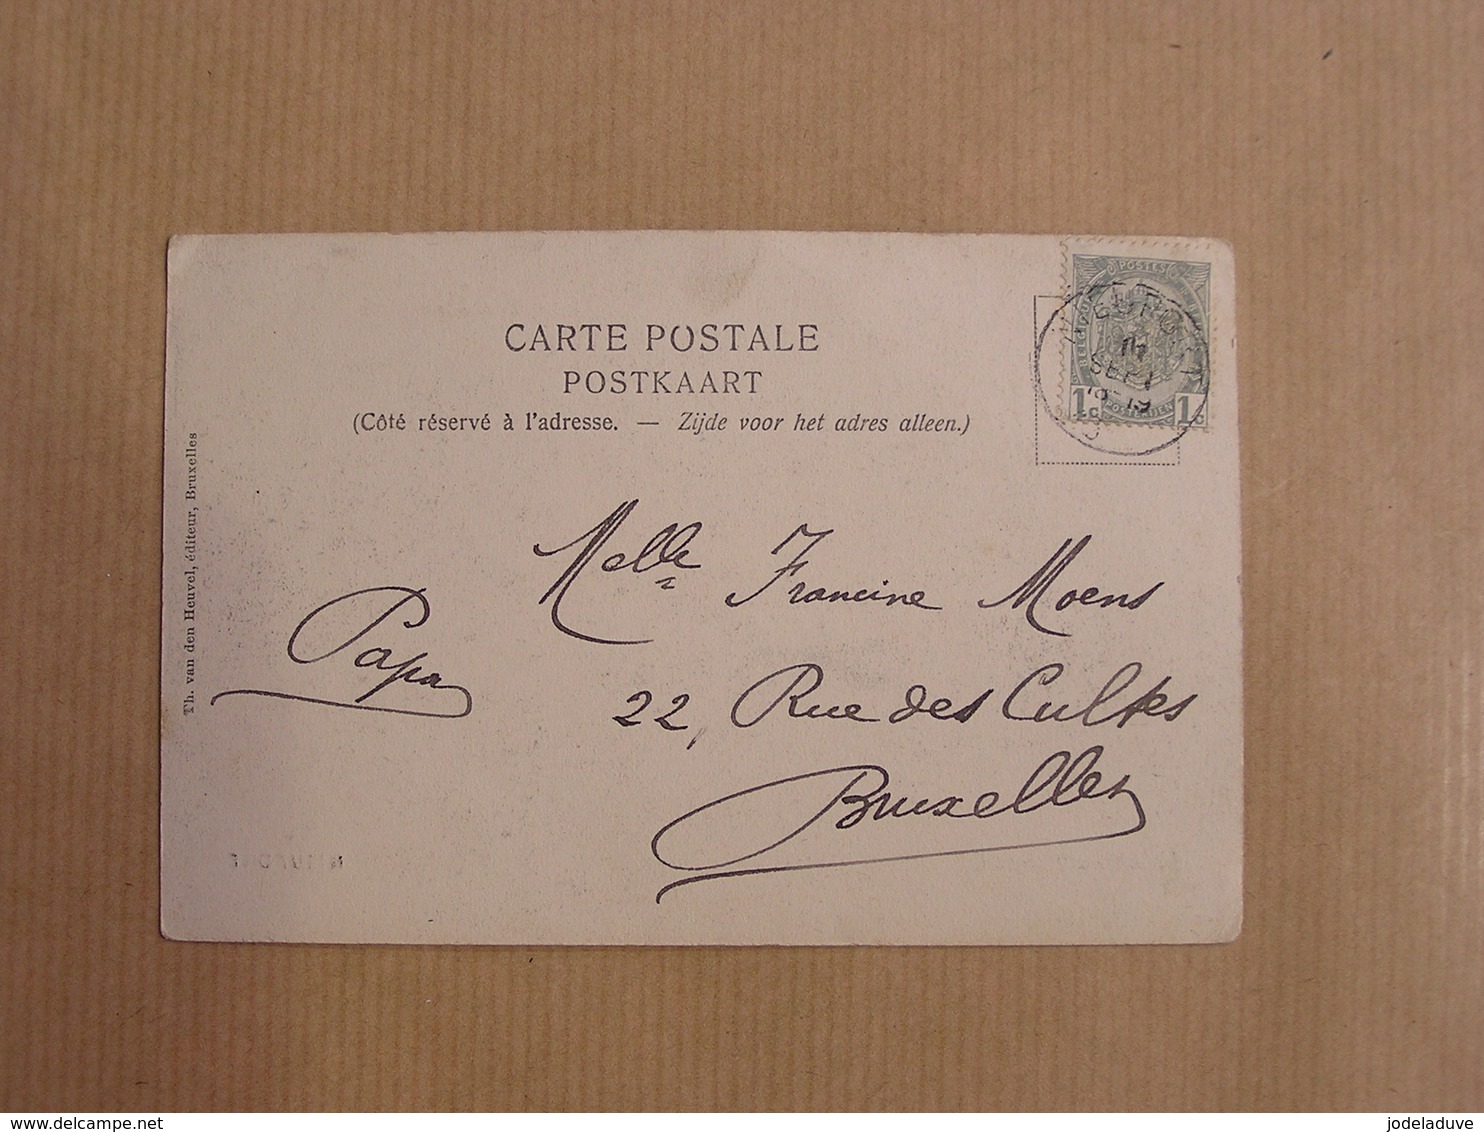 CARTE POSTALE
POSTKAART
(Côté réservé à l'adresse. — Zijde voor het adres alleen.)
Th. van den Heuvel, éditeur, Bruxelles
POSTES
SEPT
18-19
1c POSTERIJEN 1c
Melle Francine Moens
Papa
22, Rue des Cultes
Bruxelles
delcampe.net
jodeladuve